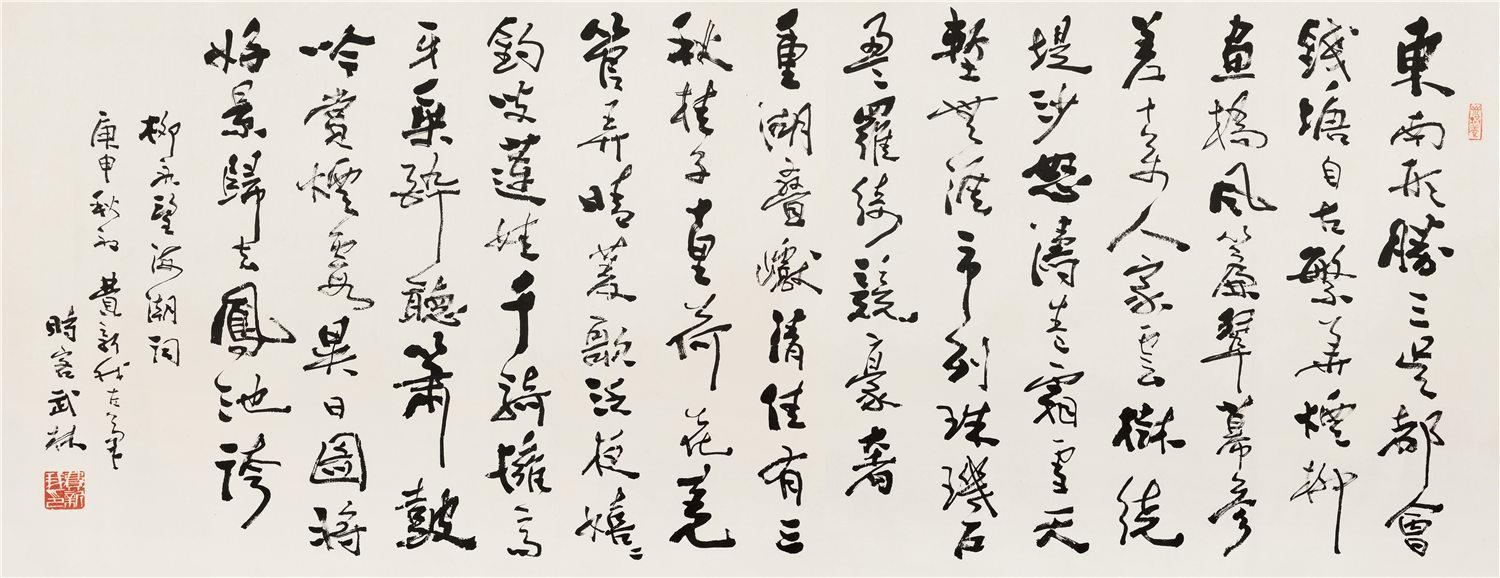 東南形勝三吳都會
錢塘自古繁華煙柳
畫橋風簾翠幕參
差十萬人家雲樹繞
堤沙怒濤卷霜雪天
塹無涯市列珠璣戶
盈〻羅綺競豪奢
重湖疊巘清佳有三
秋桂子十里荷花羌
管弄晴菱歌泛夜嬉〻
釣叟蓮娃千騎擁高
牙乘醉聽簫鼓
吟賞煙霞異日圖將
好景歸去鳳池誇
柳永望海潮詞
庚申秋初費新我左筆
時客武林
費新我印